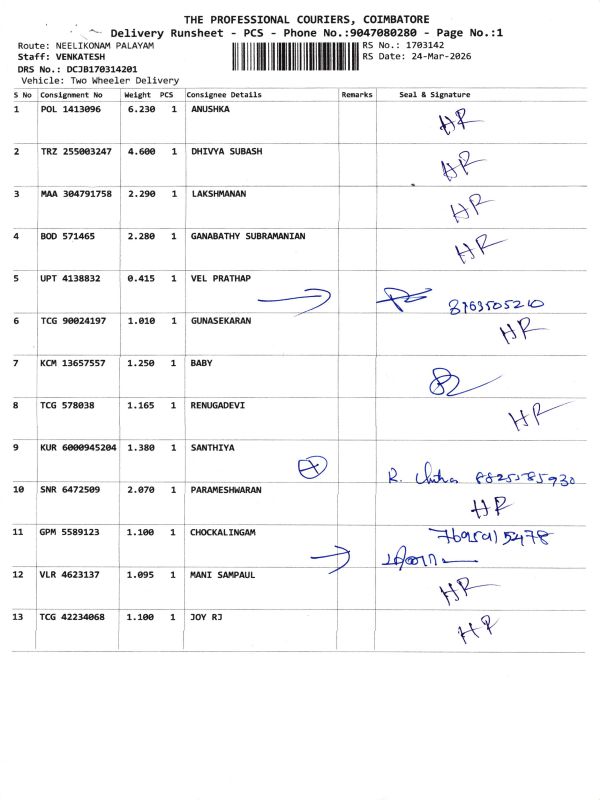 THE PROFESSIONAL COURIERS, COIMBATORE
Delivery Runsheet - PCS - Phone No.:9047080280 - Page No.:1
Route: NEELIKONAM PALAYAM RS No.: 1703142
Staff: VENKATESH RS Date: 24-Mar-2026
DRS No.: DCJB170314201
Vehicle: Two Wheeler Delivery
S No Consignment No Weight PCS Consignee Details Remarks Seal & Signature
1 POL 1413096 6.230 1 ANUSHKA HR
2 TRZ 255003247 4.600 1 DHIVYA SUBASH HR
3 MAA 304791758 2.290 1 LAKSHMANAN HR
4 BOD 571465 2.280 1 GANABATHY SUBRAMANIAN HR
5 UPT 4138832 0.415 1 VEL PRATHAP
8763505210
6 TCG 90024197 1.010 1 GUNASEKARAN HR
7 KCM 13657557 1.250 1 BABY
8 TCG 578038 1.165 1 RENUGADEVI HR
9 KUR 6000945204 1.380 1 SANTHIYA
R. Chitra 8825585930
10 SNR 6472509 2.070 1 PARAMESHWARAN HR
11 GPM 5589123 1.100 1 CHOCKALINGAM
12 VLR 4623137 1.095 1 MANI SAMPAUL HR
13 TCG 42234068 1.100 1 JOY RJ HR